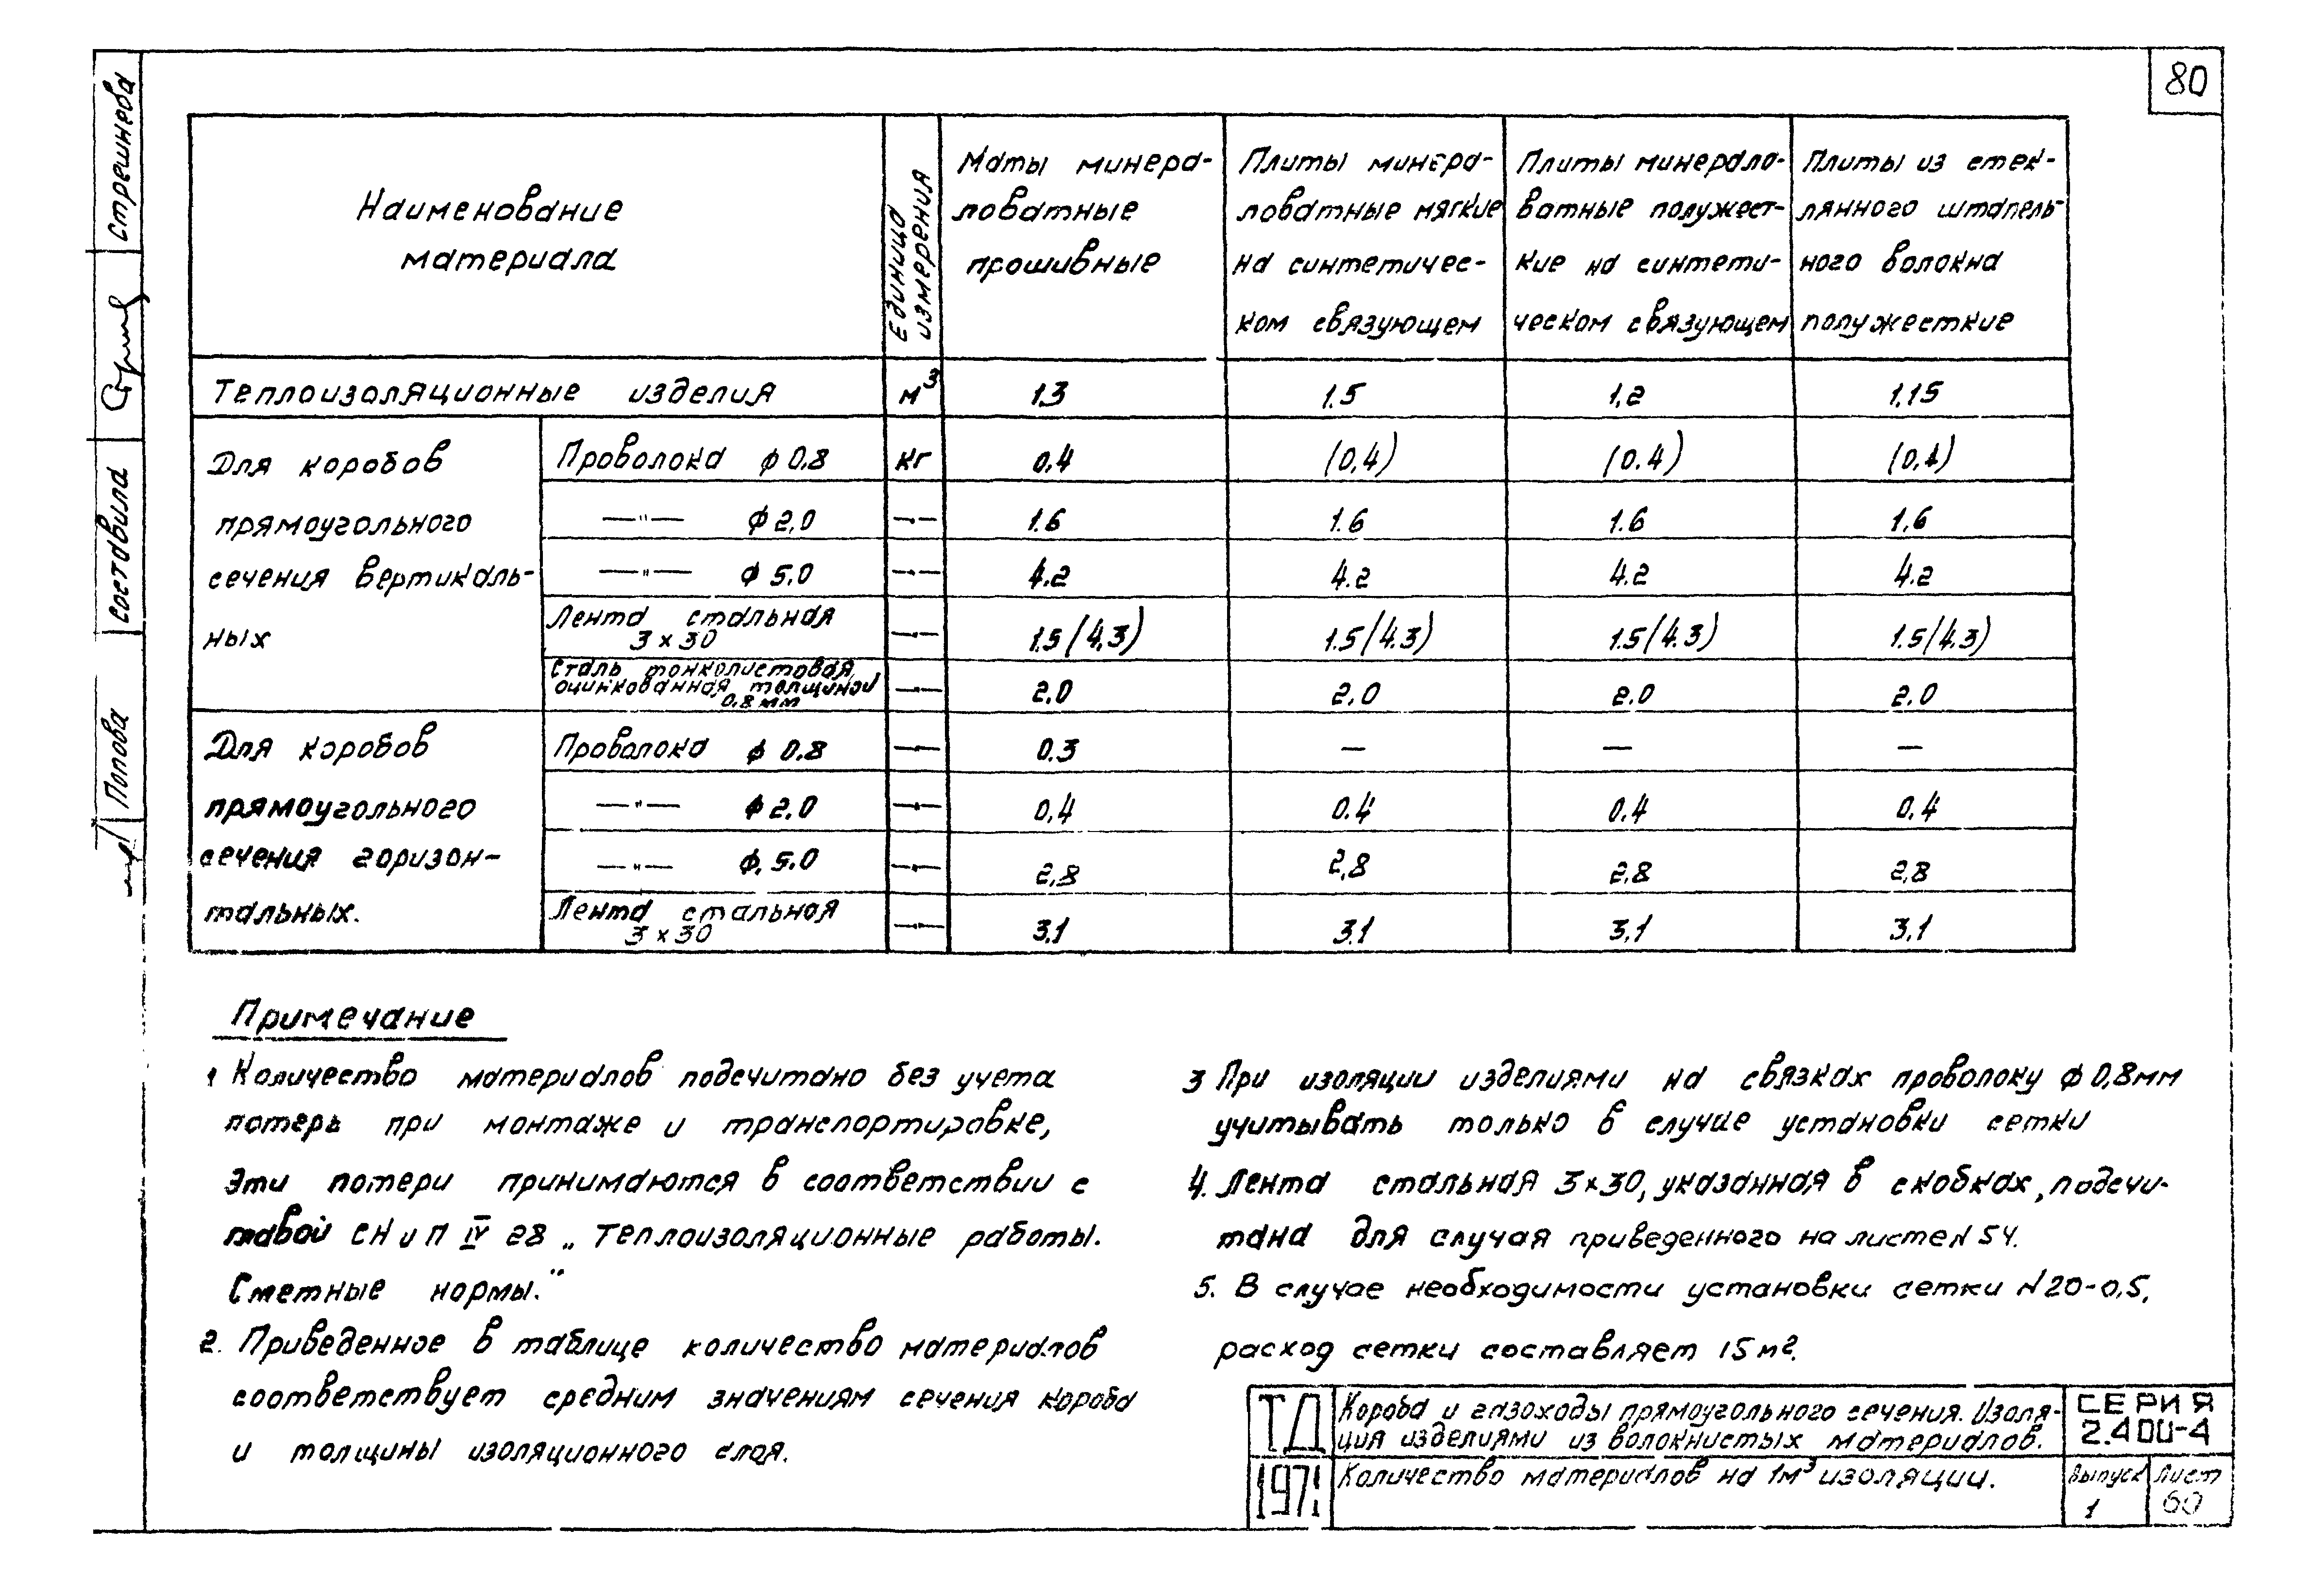 80
Стрешнева
составила
Попова
Наименование
материала
Единица
измерения
Маты минера-
ловатные
прошивные
Плиты минера-
ловатные мягкие
на синтетичес-
ком связующем
Плиты минерало-
ватные полужест-
кие на синтети-
ческом связующем
Плиты из стек-
лянного штапель-
ного волокна
полужесткие
Теплоизоляционные изделия м³ 1.3 1.5 1,2 1,15
Для коробов
прямоугольного
сечения вертикаль-
ных
Проволока ф 0.8 кг 0.4 (0,4) (0.4) (0,4)
—"— ф 2,0 —"— 1.6 1.6 1.6 1,6
—"— ф 5.0 —"— 4.2 4.2 4.2 4.2
Лента стальная
3×30 —"— 1.5/4.3) 1.5/4.3) 1.5/4.3) 1.5/4.3)
Сталь тонколистовая
оцинкованная толщиной
0,8 мм —"— 2.0 2.0 2.0 2.0
Для коробов
прямоугольного
сечения горизон-
тальных.
Проволока ф 0.8 —"— 0.3 — — —
—"— ф 2.0 —"— 0,4 0.4 0.4 0.4
—"— ф. 5.0 —"— 2,8 2,8 2,8 2,8
Лента стальная
3×30 —"— 3.1 3.1 3.1 3.1
Примечание
1 Количество материалов подсчитано без учета
потерь при монтаже и транспортировке,
Эти потери принимаются в соответствии с
главой СНиП IV 28 „Теплоизоляционные работы.
Сметные нормы."
2. Приведенное в таблице количество материалов
соответствует средним значениям сечения короба
и толщины изоляционного слоя.
3 При изоляции изделиями на связках проволоку ф 0,8мм
учитывать только в случае установки сетки
4. Лента стальная 3×30, указанная в скобках, подсчи-
тана для случая приведенного на листе N 54.
5. В случае необходимости установки сетки N20-0,5,
расход сетки составляет 15 м².
ТД
1971
Короба и газоходы прямоугольного сечения. Изоля-
ция изделиями из волокнистых материалов.
Количество материалов на 1м³ изоляции.
СЕРИЯ
2.400-4
Выпуск
1
Лист
60